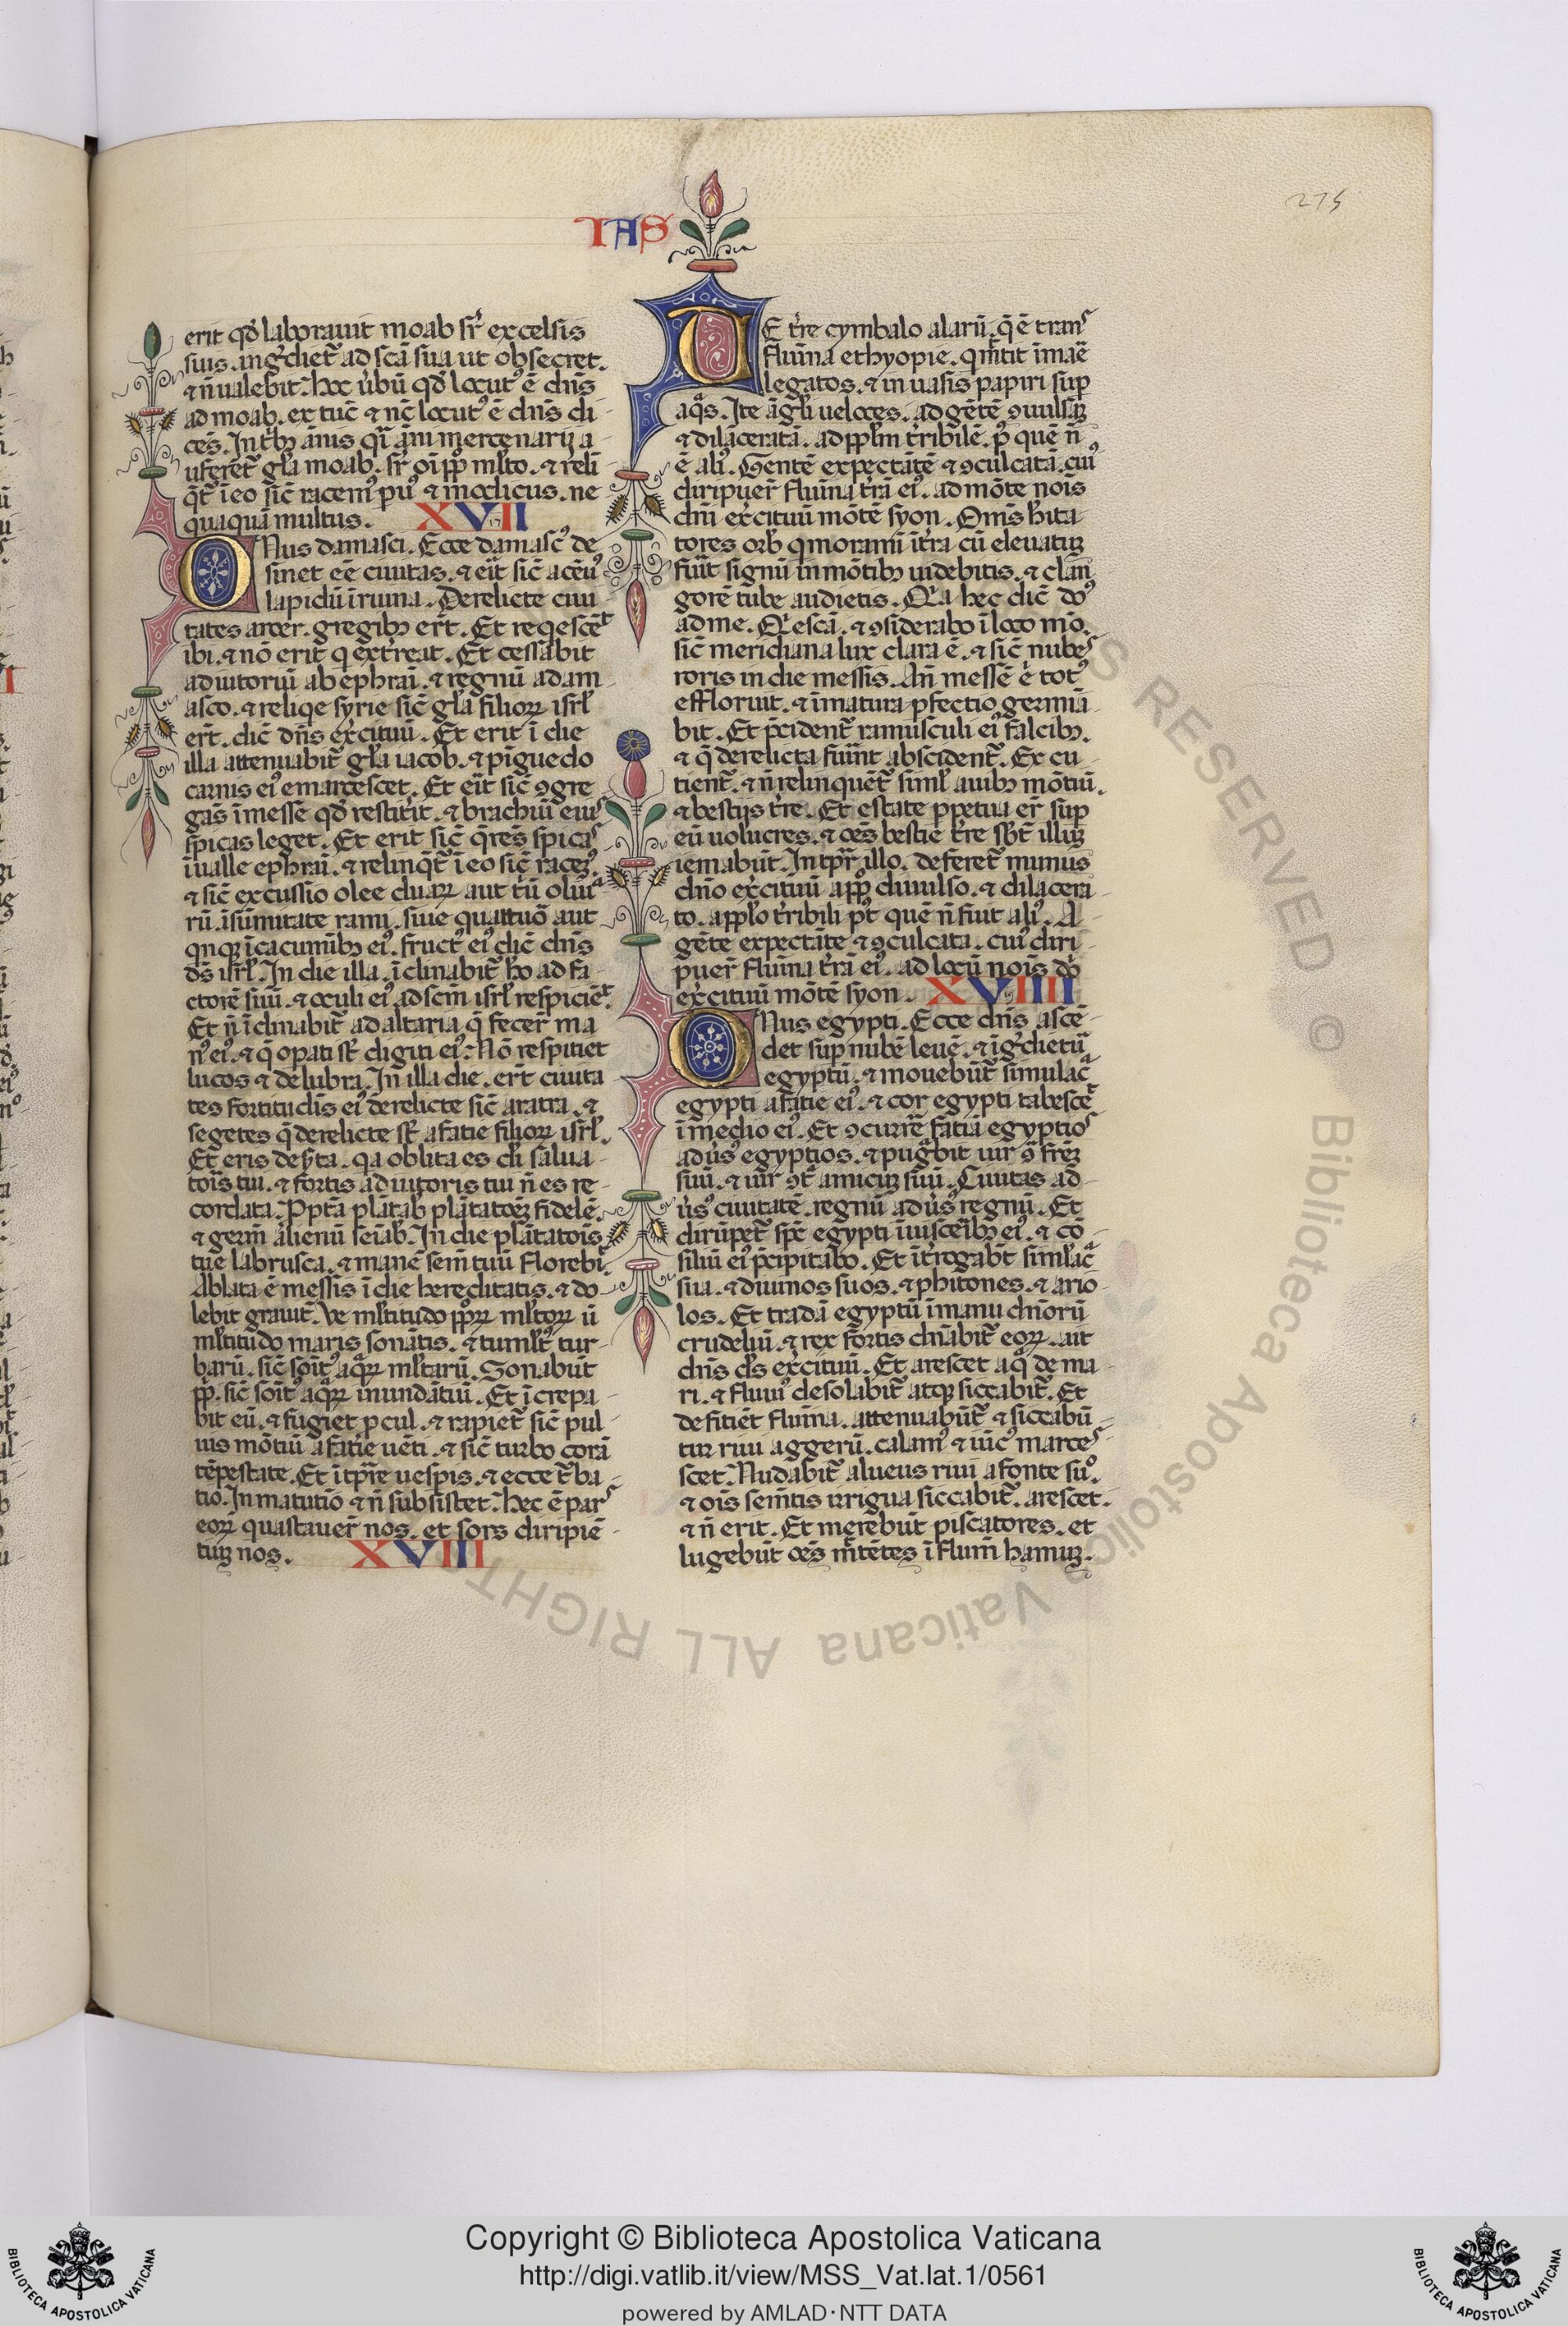 275
IAS
erit qd̄ laborauit moab sr̄ excelsis
suis. ingdiet̄ ad scā sua ut obsecret.
⁊ n̄ ualebit. Hoc u̇bū qd̄ locut᾽ ē dn̄s
ad moab. ex tūc ⁊ nc̄ locut᾽ ē dn̄s di-
ces. In tb᾽ ānis qi āni mercenarij a-
uferet̄ gl̄a moab. sr̄ oī pp̄ ml̄to. ⁊ reli
q̄t᾽ i eo sic̄ racem᾽ pu᾽ ⁊ modicus. ne
quaquā multus. XVII
ONus damasci. Ecce damasc᾽ de
sinet eē ciuitas. ⁊ eit̄ sic̄ aceu᾽
lapidū i ruina. Derelicte ciui
tates aroer. gregib᾽ ert̄. Et reqescēt
ibi. ⁊ nō erit q exterreat. Et cessabit
adiutoriū ab ephrai. ⁊ regnū a dam
asco. ⁊ reliqe syrie sic̄ gl̄a filioꝝ isrl̄
ert̄. dic̄ dn̄s exċituū. Et erit ī die
illa attenuabit̄ gl̄a iacob. ⁊ piguedo
carnis ei᾽ emarcescet. Et eit̄ sic̄ ꝯgre
gās ī messē qd̄ restiterit. ⁊ brachiū eius
spicas leget. Et erit sic̄ q̄res spicas
ī ualle ephrai. ⁊ relinqt̄ ī eo sic̄ racem᾽.
⁊ sic̄ excussio olee duaꝝ aut t̄ū oliua
rū. ī sūmitate rami. siue quattuō aut
qnqꝫ ī cacumīb᾽ ei᾽. fruct᾽ ei᾽ dic̄ dn̄s
ds̄ isrl̄. In die illa. īclinabit̄ hō ad fa-
ctorē suū. ⁊ oculi ei᾽ ad scm̄ isrl̄ respiciēt.
Et n̄ īclinabit̄ ad altaria q̄ fecer̄ ma
n᾽ ei᾽. ⁊ q̄ opati st̄ digiti ei᾽. Nō respitiet
lucos ⁊ delubra. In illa die. ert̄ ciuita
tes fortitudīs ei᾽ derelicte sic̄ aratra. ⁊
segetes q̄ derelicte st̄ a fatie filioꝝ isrl̄.
Et eris desta. qa oblita es di̇ salua-
tois̄ tui. ⁊ fortis adiutoris tui n̄ es re-
cordata. Ppt̄a plātab᾽ plātatoeꝫ fidelē.
⁊ germ̄ alienū seiab᾽. In die plātatois̄
tue labrusca. ⁊ manē sem̄ tuū florebit.
Ablata ē messis ī die hereditatis. ⁊ do-
lebit grauit̄. Ve ml̄titudo pploꝝ ml̄toꝝ ū
ml̄titudo maris sonātis. ⁊ tumlt᾽ tur-
barū. sic̄ soit᾽ aqꝝ ml̄tarū. Sonabūt
pp̄. sic̄ soit᾽ aqꝝ inundātiū. Et īcrepa-
bit eū. ⁊ fugiet p cul. ⁊ rapiet̄ sic̄ pul-
uis mōtiū a fatie uēti. ⁊ sic̄ turbo corā
tēpestate. Et ī tpr̄e uespis. ⁊ ecce t̄ba-
tio. In matutio ⁊ n̄ subsistet. Hec ē pars
eoꝝ qua staueṙ nos. et sors diripiē-
tiuꝫ nos. XVIII
VE tr̄e cymbalo alarū. q̄ ē trans
flumina ethyopie. q mittit ī marē
legatos. ⁊ in uasis papiri sup
aqs. Ite āgli ueloces. ad gētē ꝯuulsaꝫ
⁊ dilaceratā. ad pplm̄ tr̄ribilē. p᾽ quē n̄
ē ali᾽. Gentē expectātē ⁊ ꝯculcatā. cui᾽
diripuer̄ flumina tr̄ā ei᾽. ad mōtē nois̄
dn̄i exċituū mōtē syon. Om̄s hita-
tores orb᾽ q moramī ī t̄ra cū eleuatuꝫ
fuit̄ signū in mōtib᾽ uidebitis. ⁊ clan
gorē tube audietis. Qa hec dic̄ do᾽
ad me. Qescā. ⁊ ꝯsiderabo ī loco mō.
sic̄ meridiana lux clara ē. ⁊ sic̄ nubes
roris in die messis. An̄ messē ē tot᾽
effloruit. ⁊ imatura pfectio germia-
bit. Et p̄cident̄ ramusculi ei᾽ falcib᾽.
⁊ q̄ derelicta fuīnt abscident̄. Ex cu-
tient̄. ⁊ n̄ relinquēt̄ siml᾽ auib᾽ mōtiū.
⁊ bestijs tr̄e. Et estate ppetua er̄ sup
eū uolucres. ⁊ oēs bestie tr̄e sbt̄ illuꝫ
iemabūt. In tpr̄ illo. deferet̄ munus
dn̄o exċituū a pp̄ diuulso. ⁊ dilacera-
to. a pplo tr̄ribili p᾽t quē n̄ fuit ali᾽. A-
gēte expectāte ⁊ ꝯculcata. cui᾽ diri-
puer̄ flumina tr̄ā ei᾽. ad locū nois̄ dō
exċituū mōtē syon. XVIIII
ONus egypti. Ecce dn̄s ascē-
det sup nubē leuē. ⁊ igdietu᾽
egyptū. ⁊ mouebūt simulacᵃ
egypti a fatie ei᾽. ⁊ cor egypti tabescet
ī medio ei᾽. Et ꝯcurrē fatiā egyptios
aduus᾽ egyptios. ⁊ pugbit uir ꝯ frēꝫ
suū. ⁊ uir ꝯtᵃ amicuꝫ suū. Ciuitas ad-
uus᾽ ciuitatē. regnū aduus᾽ regnū. Et
dirūpet̄ spc̄ egypti ī uiscerib᾽ ei᾽. ⁊ cō-
siliū ei᾽ p̄cipitabo. Et īt̄rogabt̄ simlacᵃ
sua. ⁊ diuinos suos. ⁊ phitones. ⁊ ario-
los. Et tradā egyptū ī manu dn̄orū
crudeliū. ⁊ rex fortis dn̄abit̄ eoꝝ. ait
dn̄s ds̄ exċituū. Et arescet aq̄ de ma-
ri. ⁊ fluui᾽ desolabit̄ atqꝫ siccabit̄. Et
defitiēt flumina. attenuabūt̄ ⁊ siccabū-
tur riui aggerū. calam᾽ ⁊ iūc᾽ marce-
scet. Nudabit̄ alueus riui a fonte su᾽.
⁊ ois̄ semtis irrigua siccabit̄. arescet.
⁊ n̄ erit. Et merebūt piscatores. et
lugebūt oēs mittētes ī flum̄ hamuꝫ.
© Biblioteca Apostolica Vaticana ALL RIGHTS RESERVED
Copyright © Biblioteca Apostolica Vaticana
http://digi.vatlib.it/view/MSS_Vat.lat.1/0561
powered by AMLAD·NTT DATA
BIBLIOTECA APOSTOLICA VATICANA
BIBLIOTECA APOSTOLICA VATICANA